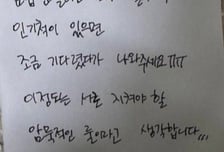 인기척이 있으면
조금 기다렸다가 나와주세요 ㅠㅠ
이정도는 서로 지켜야 할
암묵적인 룰이라고 생각합니다,,,